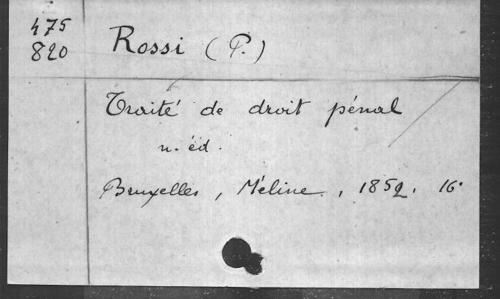 475
820
Rossi (P.)
Traité de droit pénal
n. éd.
Bruxelles, Méline., 1852. 16°